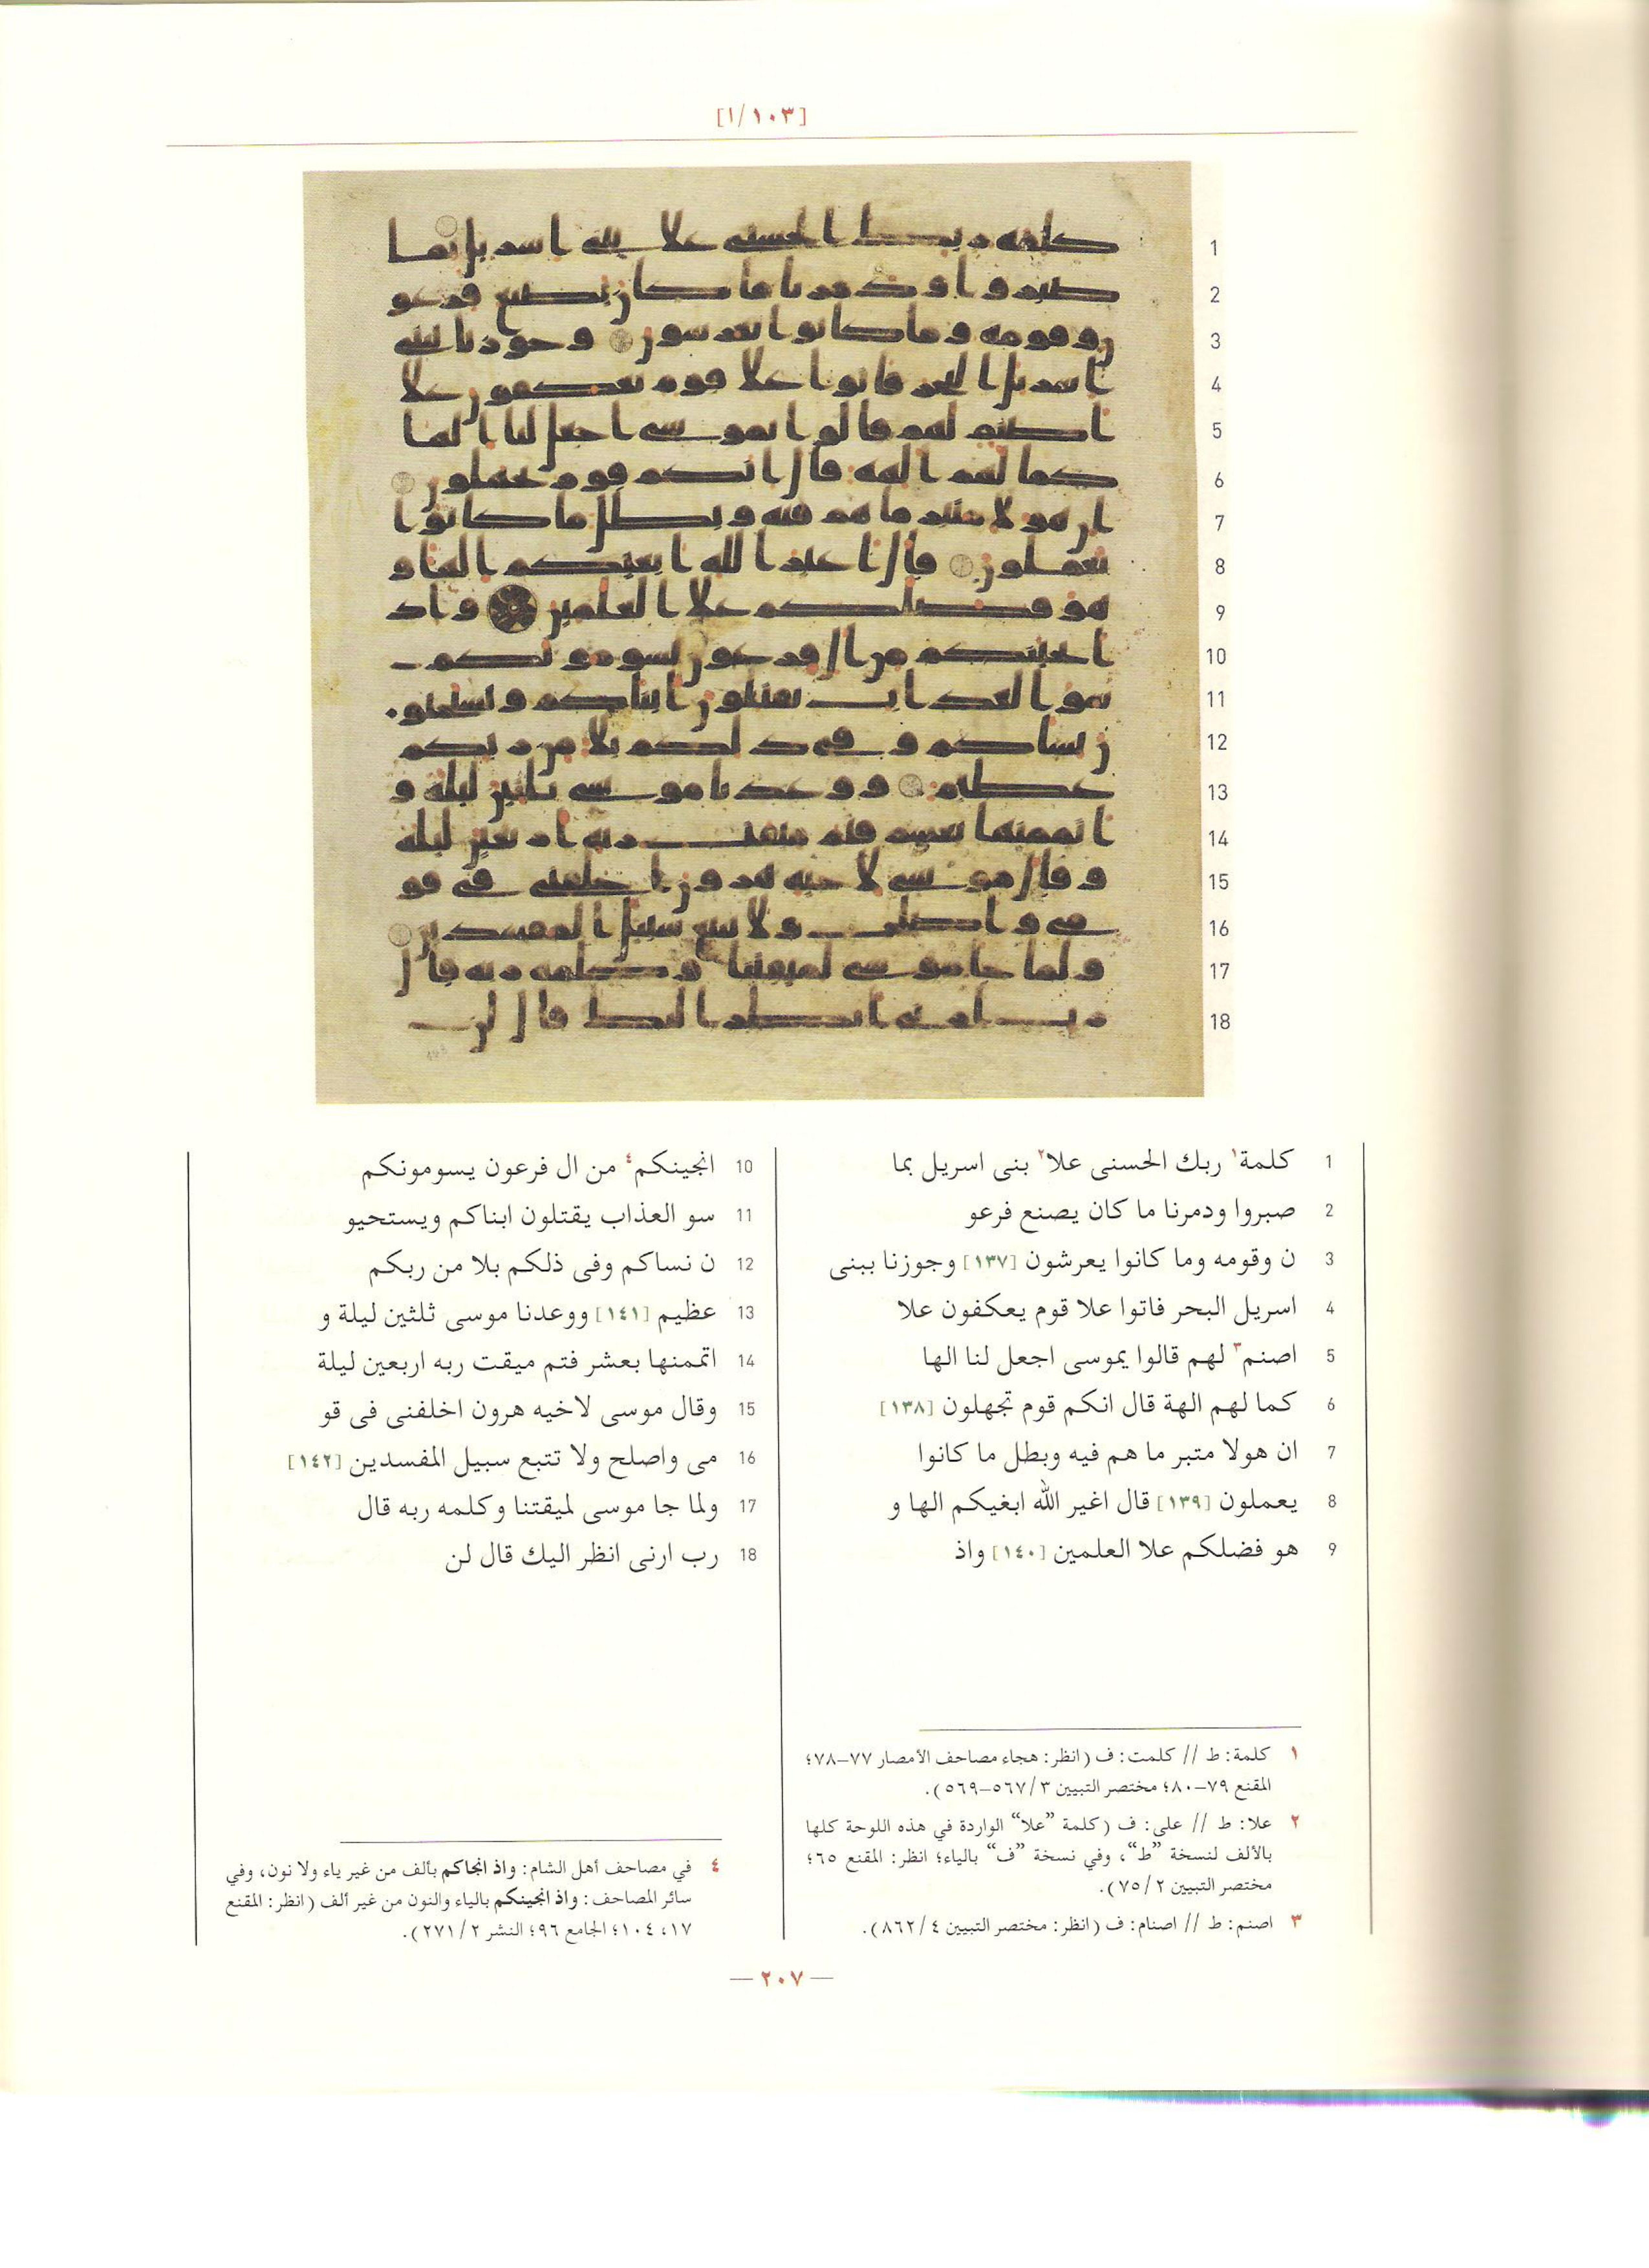 [١/١٠٣]
1 كلمة١ ربك الحسنى علا٢ بنى اسريل بما
2 صبروا ودمرنا ما كان يصنع فرعو
3 ن وقومه وما كانوا يعرشون [١٣٧] وجوزنا ببنى
4 اسريل البحر فاتوا علا قوم يعكفون علا
5 اصنم٣ لهم قالوا يموسى اجعل لنا الها
6 كما لهم الهة قال انكم قوم تجهلون [١٣٨]
7 ان هولا متبر ما هم فيه وبطل ما كانوا
8 يعملون [١٣٩] قال اغير الله ابغيكم الها و
9 هو فضلكم علا العلمين [١٤٠] واذ
10 انجينكم٤ من ال فرعون يسومونكم
11 سو العذاب يقتلون ابناكم ويستحيو
12 ن نساكم وفى ذلكم بلا من ربكم
13 عظيم [١٤١] ووعدنا موسى ثلثين ليلة و
14 اتممنها بعشر فتم ميقت ربه اربعين ليلة
15 وقال موسى لاخيه هرون اخلفنى فى قو
16 مى واصلح ولا تتبع سبيل المفسدين [١٤٢]
17 ولما جا موسى لميقتنا وكلمه ربه قال
18 رب ارنى انظر اليك قال لن
١ كلمة: ط // كلمت: ف (انظر: هجاء مصاحف الأمصار ٧٧–٧٨؛
المقنع ٧٩–٨٠؛ مختصر التبيين ٣/٥٦٧–٥٦٩).
٢ علا: ط // على: ف (كلمة ”علا“ الواردة في هذه اللوحة كلها
بالألف لنسخة ”ط“، وفي نسخة ”ف“ بالياء؛ انظر: المقنع ٦٥؛
مختصر التبيين ٢/٧٥).
٣ اصنم: ط // اصنام: ف (انظر: مختصر التبيين ٤/٨٦٢).
٤ في مصاحف أهل الشام: واذ انجاكم بألف من غير ياء ولا نون، وفي
سائر المصاحف: واذ انجينكم بالياء والنون من غير ألف (انظر: المقنع
١٧، ١٠٤؛ الجامع ٩٦؛ النشر ٢/٢٧١).
— ٢٠٧ —